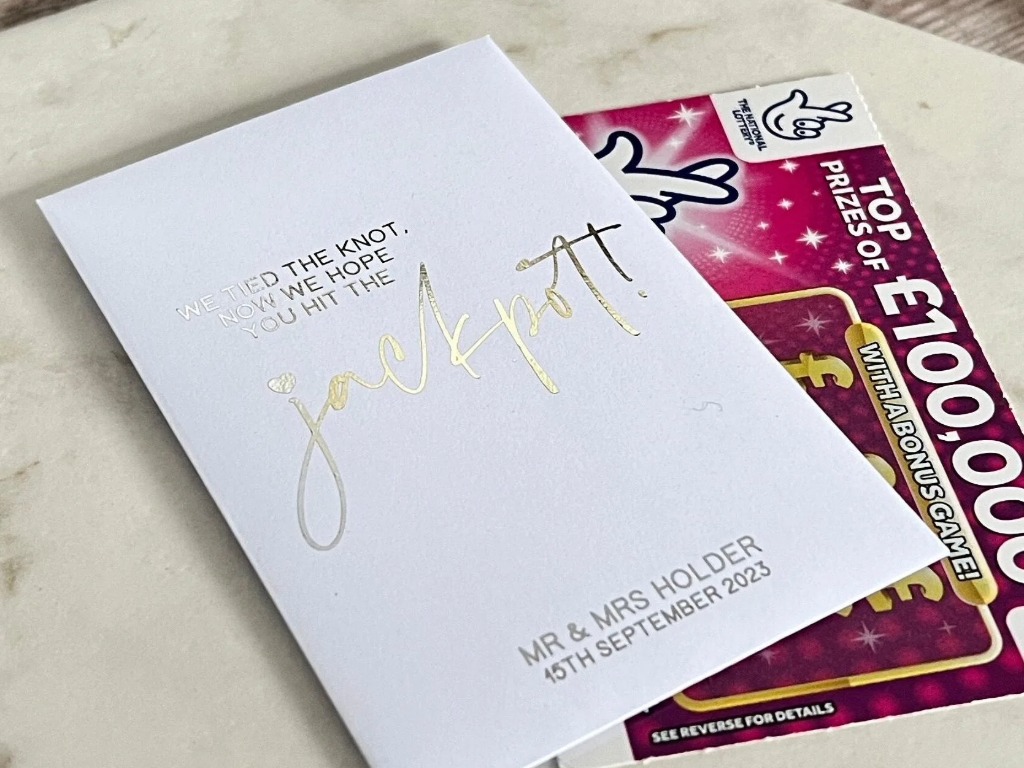 WE TIED THE KNOT,
NOW WE HOPE
YOU HIT THE
jackpot!
MR & MRS HOLDER
15TH SEPTEMBER 2023
THE NATIONAL
LOTTERY®
TOP
PRIZES OF
£100,000
WITH A BONUS GAME!
SEE REVERSE FOR DETAILS